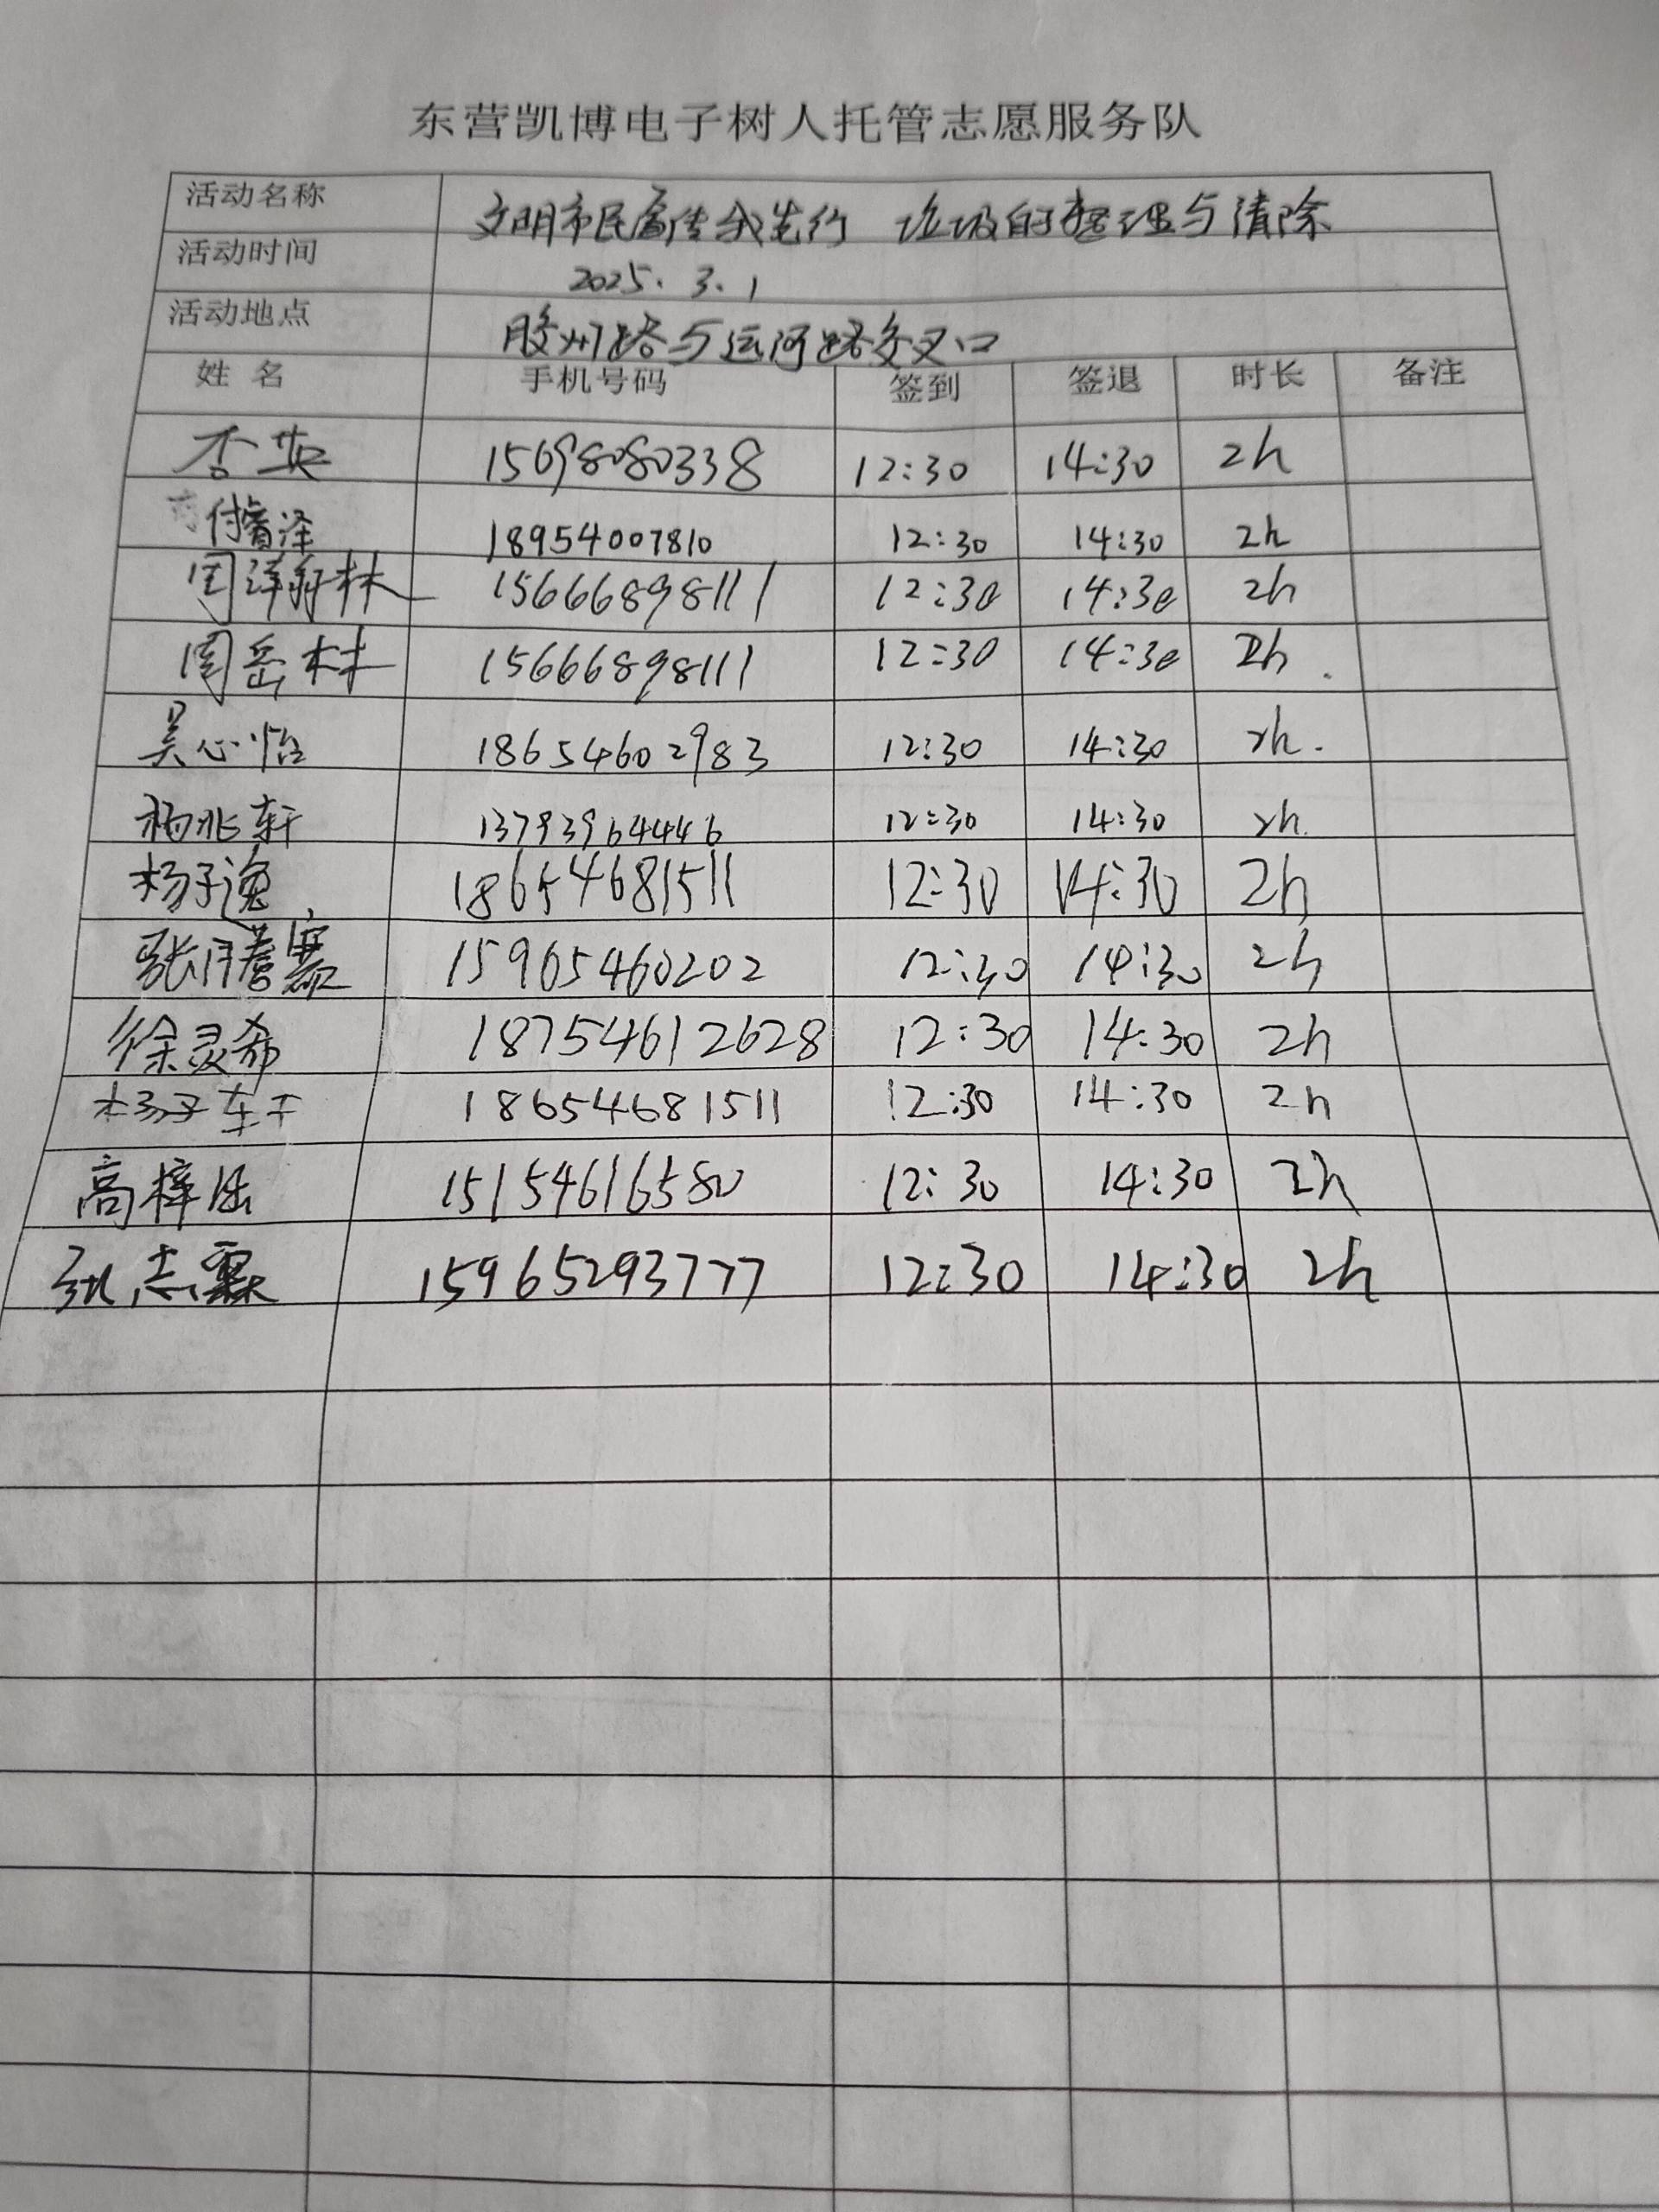 东营凯博电子树人托管志愿服务队
活动名称 文明市民宣传我先行 垃圾的整理与清除
活动时间 2025.3.1
活动地点 胶州路与运河路交叉口
姓名 手机号码 签到 签退 时长 备注
杏英 15698080338 12:30 14:30 2h
付睿泽 18954007810 12:30 14:30 2h
周 林 15666898111 12:30 14:30 2h
周岳林 15666898111 12:30 14:30 2h
吴心怡 18654602983 12:30 14:30 2h
杨兆轩 13793964446 12:30 14:30 2h
杨子逸 18654681511 12:30 14:30 2h
张 15965460202 12:30 14:30 2h
徐灵希 18754612628 12:30 14:30 2h
杨子轩 18654681511 12:30 14:30 2h
高梓 15154616580 12:30 14:30 2h
张志霖 15965293777 12:30 14:30 2h